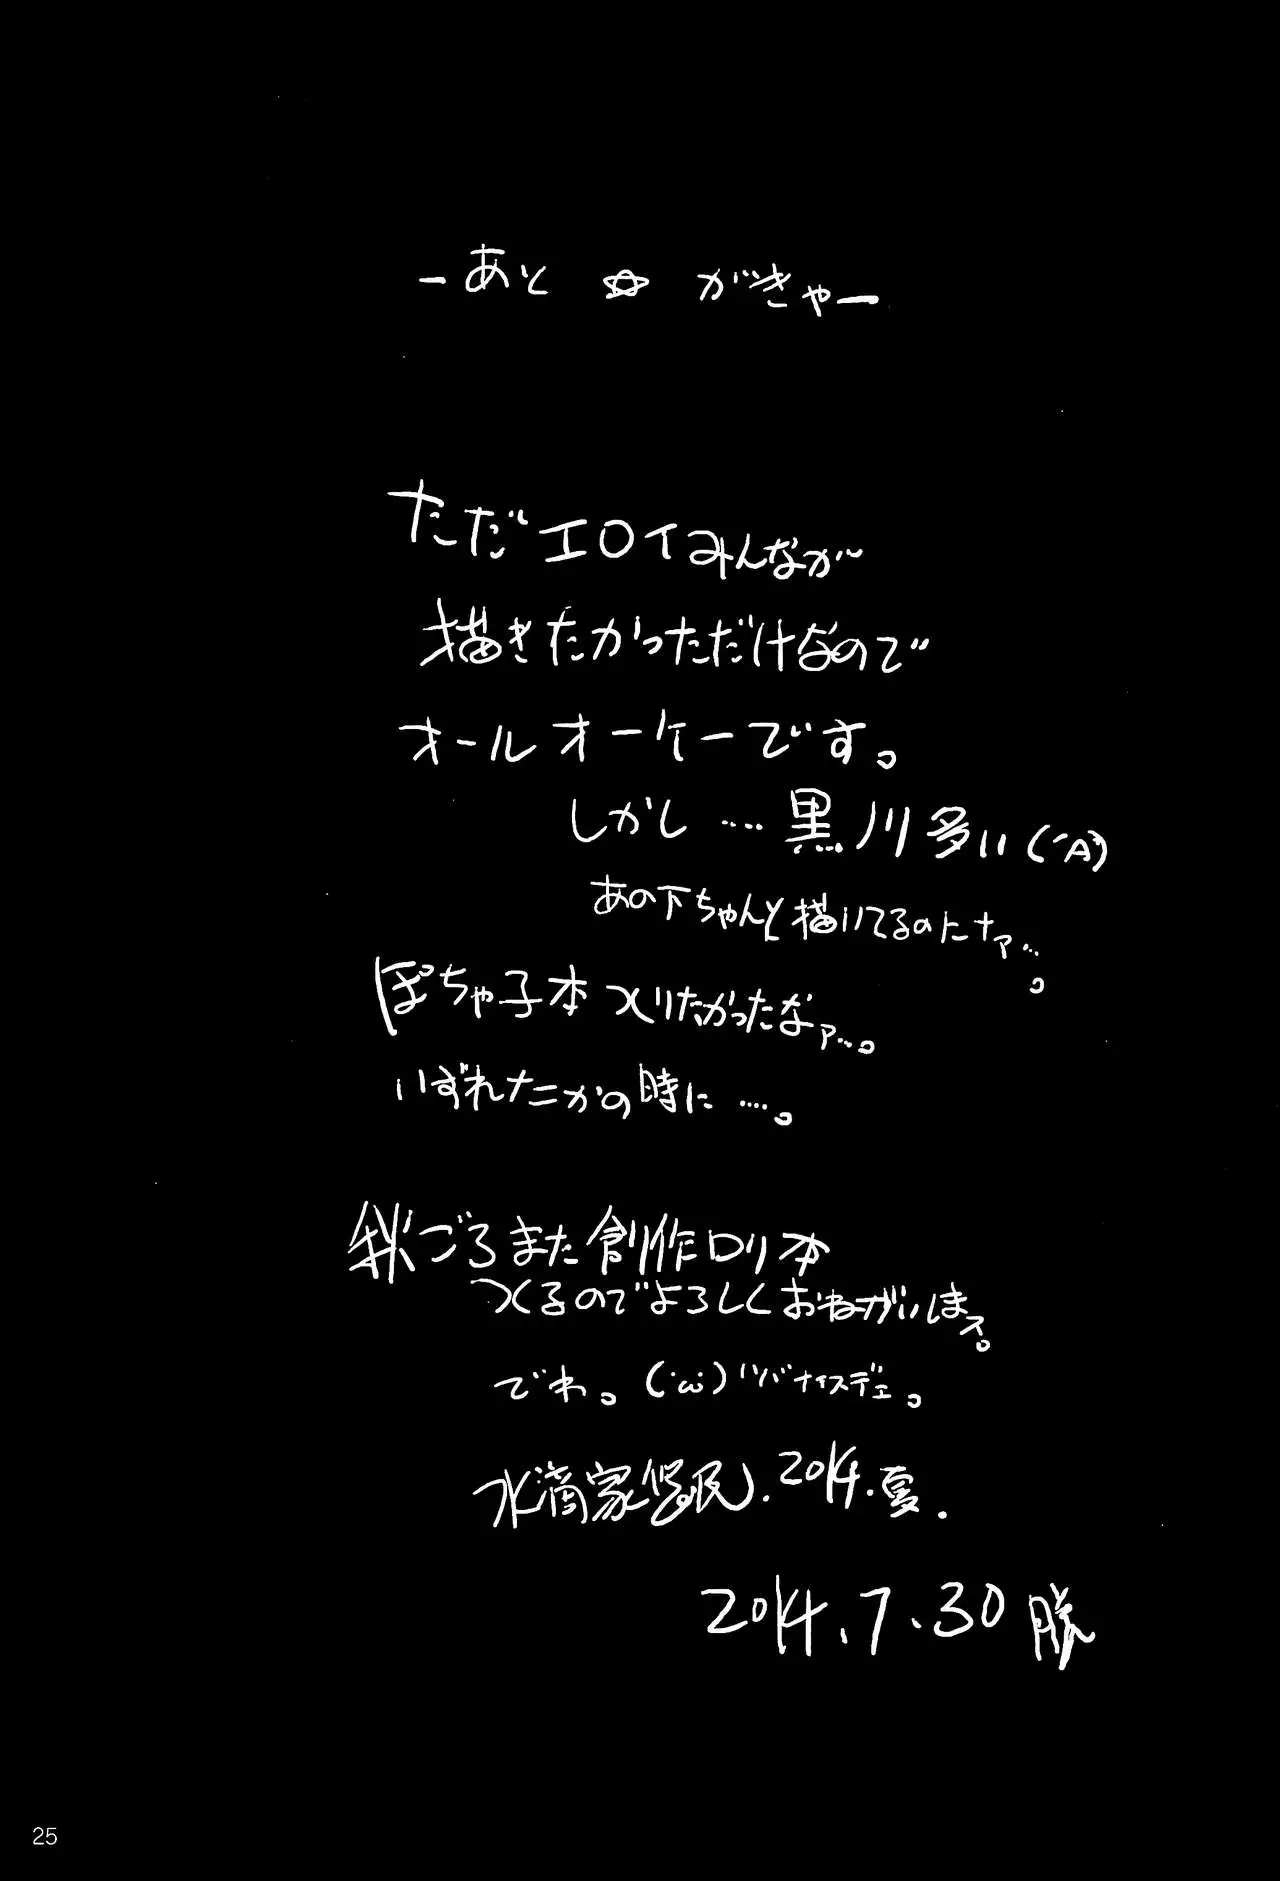 ーあと☆がきゃー
ただエロイみんなが
描きたかっただけなので
オールオーケーです。
しかし……黒川多い(´A`)
あの下ちゃんと描いてるのにナァ…。
ぽちゃ子本つくりたかったなァ…。
いずれナニかの時に……。
秋ごろまた創作ロリ本
つくるのでよろしくおねがいしまス。
でわ。(・ω・)ツバナイスデェ。
水滴家 2014.夏.
2014.7.30 勝
25